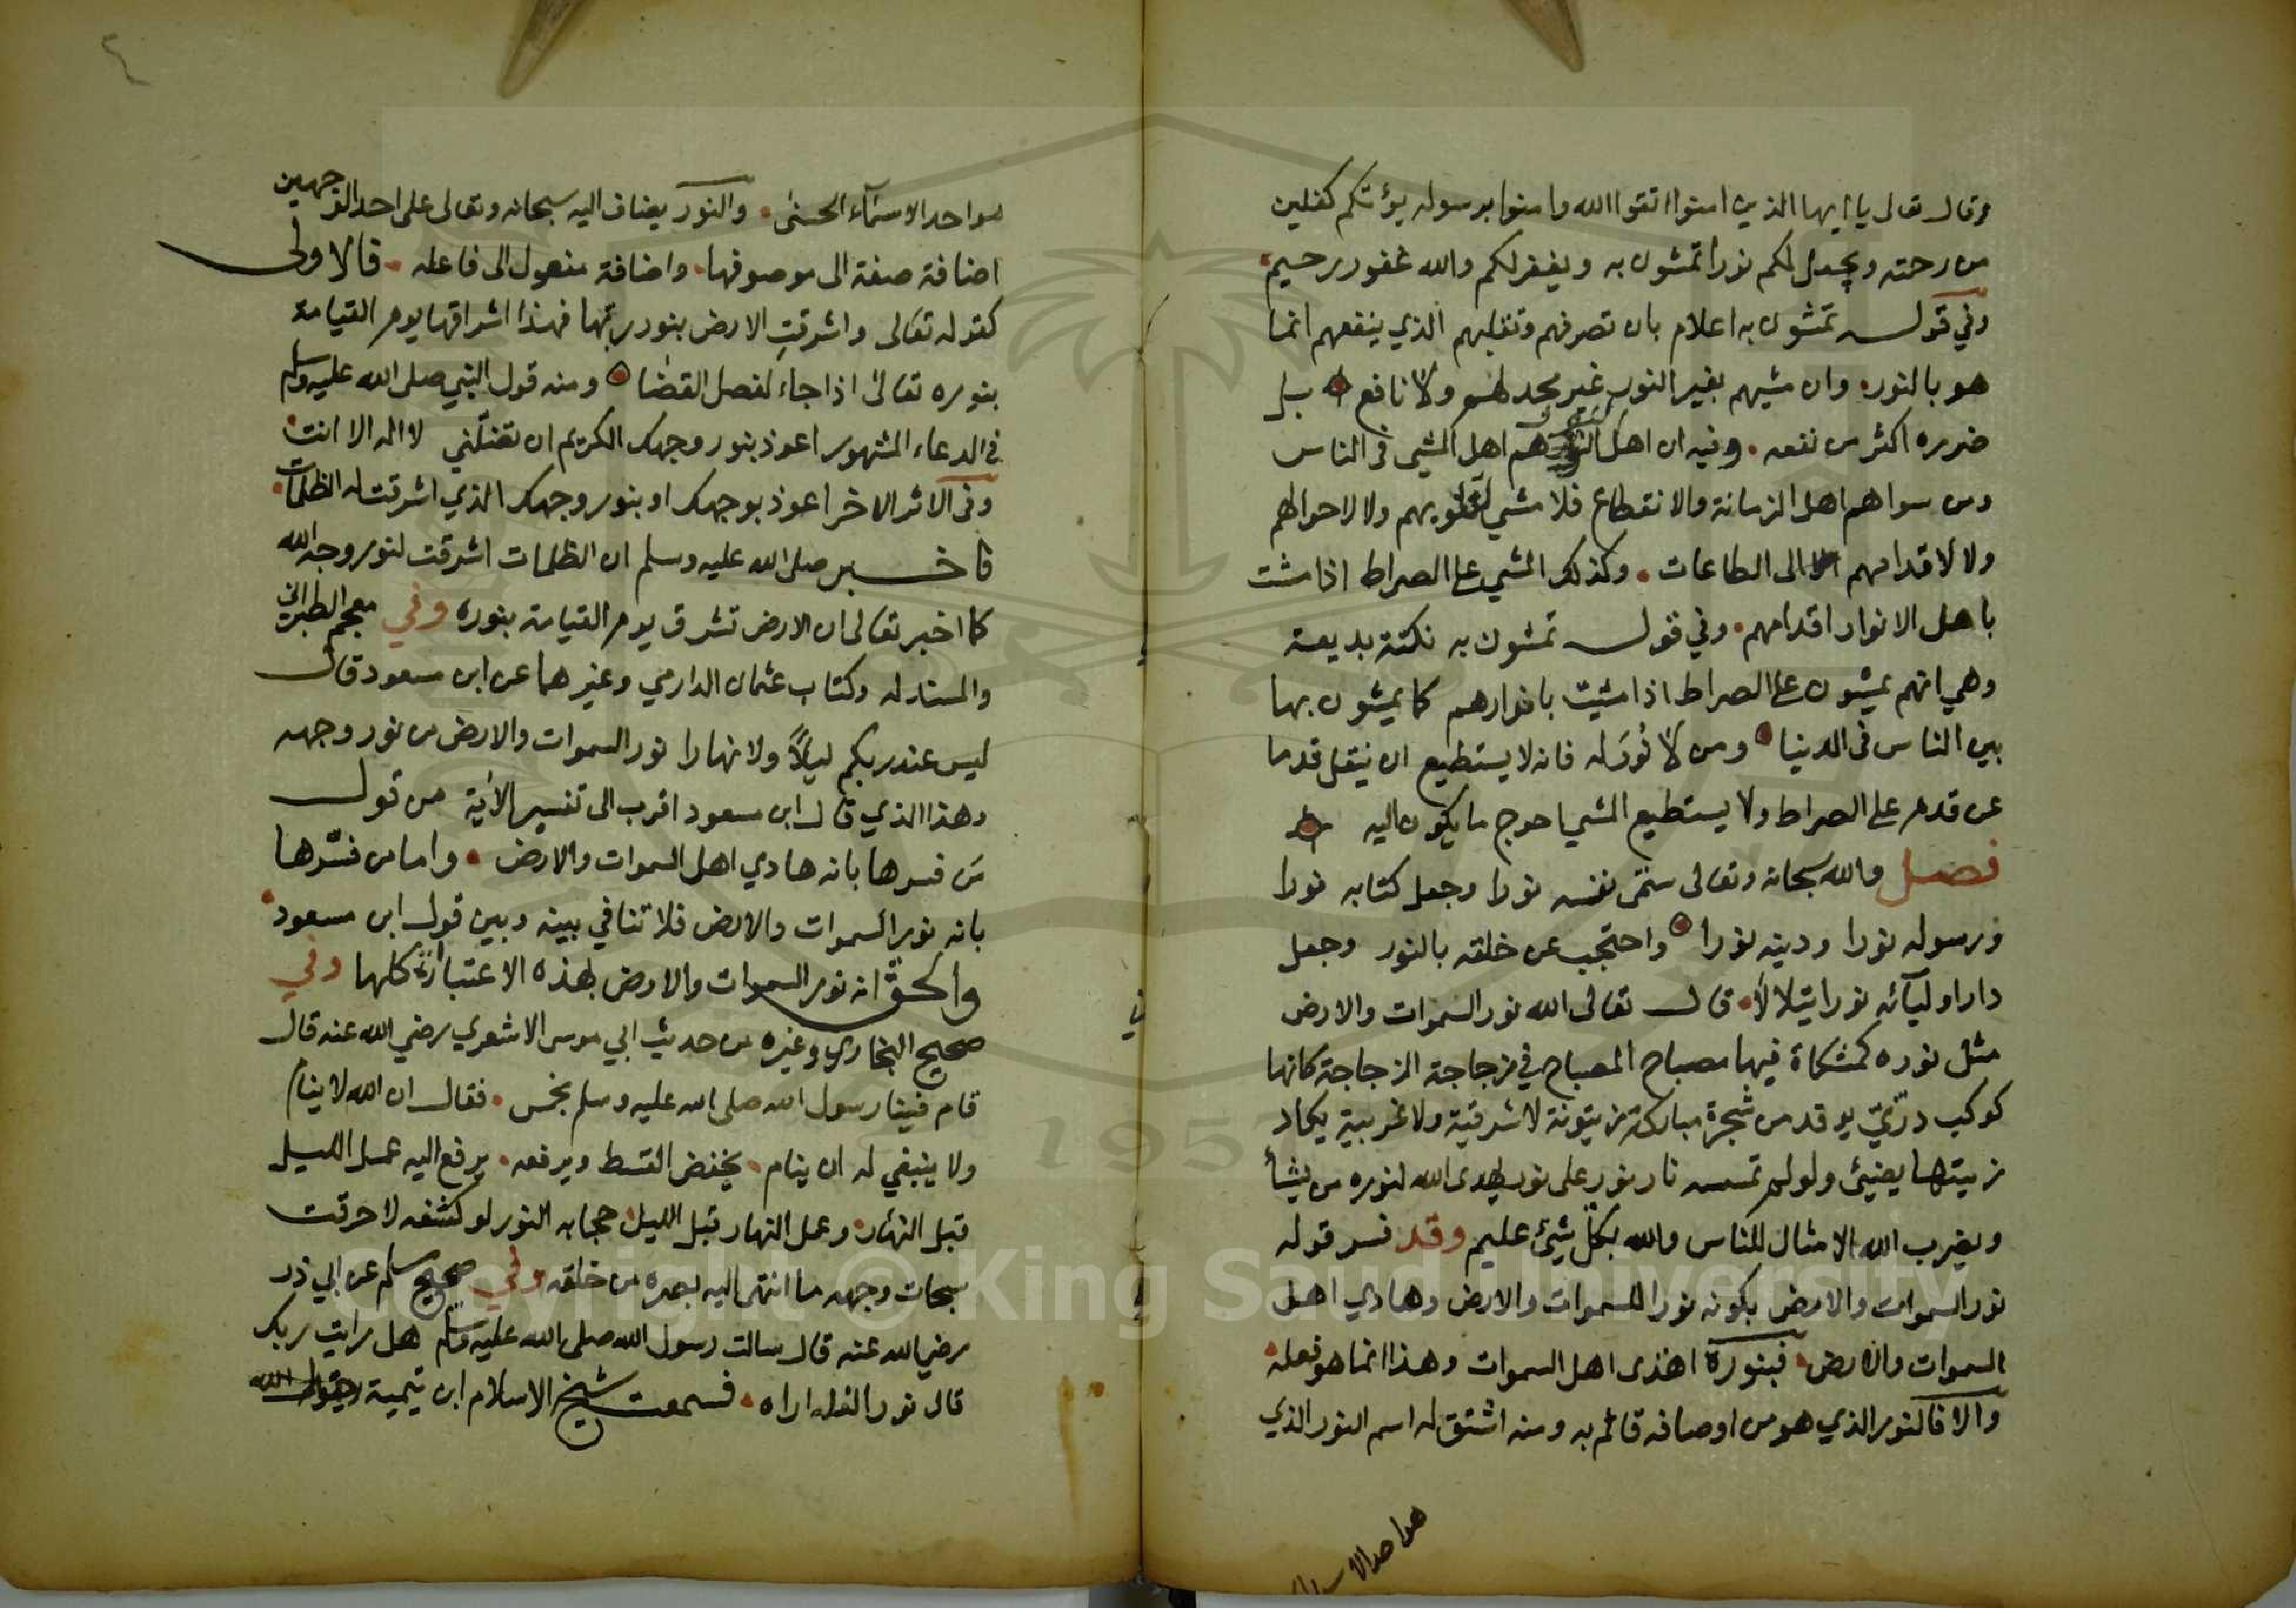 وقال تعالى يا ايها الذين امنوا اتقوا الله وامنوا برسوله يؤتكم كفلين
من رحمته ويجعل لكم نورا تمشون به ويغفر لكم والله غفور رحيم
وفي قوله تمشون به اعلام بان تصرفهم وتقلبهم الذي ينفعهم انما
هو بالنور وان مشيهم بغير النور غير مجد لهم ولا نافع بل
ضرره اكثر من نفعه وفيه ان اهل النور هم اهل المشي في الناس
ومن سواهم اهل الزمانة والانقطاع فلا مشي لقلوبهم ولا لاحوالهم
ولا لاقدامهم الى الطاعات وكذلك المشي على الصراط اذا مشت
باهل الانوار اقدامهم وفي قوله تمشون به نكتة بديعة
وهي انهم يمشون على الصراط اذا مشيت بانوارهم كما يمشون بها
بين الناس في الدنيا ومن لا نور له فانه لا يستطيع ان ينقل قدما
عن قدم على الصراط ولا يستطيع المشي احوج ما يكون اليه
فصل والله سبحانه وتعالى سمى نفسه نورا وجعل كتابه نورا
ورسوله نورا ودينه نورا واحتجب عن خلقه بالنور وجعل
دار اوليآئه نورا يتلالأ قال تعالى الله نور السموات والارض
مثل نوره كمشكاة فيها مصباح المصباح في زجاجة الزجاجة كانها
كوكب درّيّ يوقد من شجرة مباركة زيتونة لا شرقية ولا غربية يكاد
زيتها يضيئ ولو لم تمسسه نار نور على نور يهدى الله لنوره من يشأ
ويضرب الله الامثال للناس والله بكل شيئ عليم وقد فسر قوله
نور السموات والارض بكونه نور السموات والارض وهادي اهل
السموات والارض فبنوره اهتدى اهل السموات وهذا انما هو فعله
والا فالنور الذي هو من اوصافه قائم به ومنه اشتق له اسم النور الذي
هو احد الاسماء
هو احد الاسمآء الحسنى والنور يضاف اليه سبحانه وتعالى على احد الوجهين
اضافة صفة الى موصوفها واضافة مفعول الى فاعله فالاولى
كقوله تعالى واشرقتِ الارض بنور ربها فهذا اشراقها يوم القيامة
بنوره تعالى اذا جاء لفصل القضا ومنه قول النبي صلى الله عليه وسلم
في الدعاء المشهور اعوذ بنور وجهك الكريم ان تضلّني لا اله الا انت
وفى الاثر الاخر اعوذ بوجهك او بنور وجهك الذي اشرقت له الظلمات
فاخبر صلى الله عليه وسلم ان الظلمات اشرقت لنور وجه الله
كما اخبر تعالى ان الارض تشرق يوم القيامة بنوره وفي معجم الطبراني
والسنة له وكتاب عثمان الدارمي وغيرهما عن ابن مسعود قال
ليس عند ربكم ليلاً ولا نهارا نور السموات والارض من نور وجهه
وهذا الذي قال ابن مسعود اقرب الى تفسير الاية من قول
مَن فسرها بانه هادي اهل السموات والارض واما من فسّرها
بانه نور السموات والارض فلا تنافي بينه وبين قول ابن مسعود
والحق انه نور السموات والارض بهذه الاعتبارات كلها وفي
صحيح البخاري وغيره من حديث ابي موسى الاشعري رضي الله عنه قال
قام فينا رسول الله صلى الله عليه وسلم بخمس فقال ان الله لا ينام
ولا ينبغي له ان ينام يخفض القسط ويرفعه يرفع اليه عمل الليل
قبل النهار وعمل النهار قبل الليل حجابه النور لو كشفه لاحرقت
سبحات وجهه ما انتهى اليه بصره من خلقه وفي صحيح مسلم عن ابي ذر
رضي الله عنه قال سالت رسول الله صلى الله عليه وسلم هل رايت ربك
قال نور انى اراه فسمعت شيخ الاسلام ابن تيمية يقول
Copyright © King Saud University
195